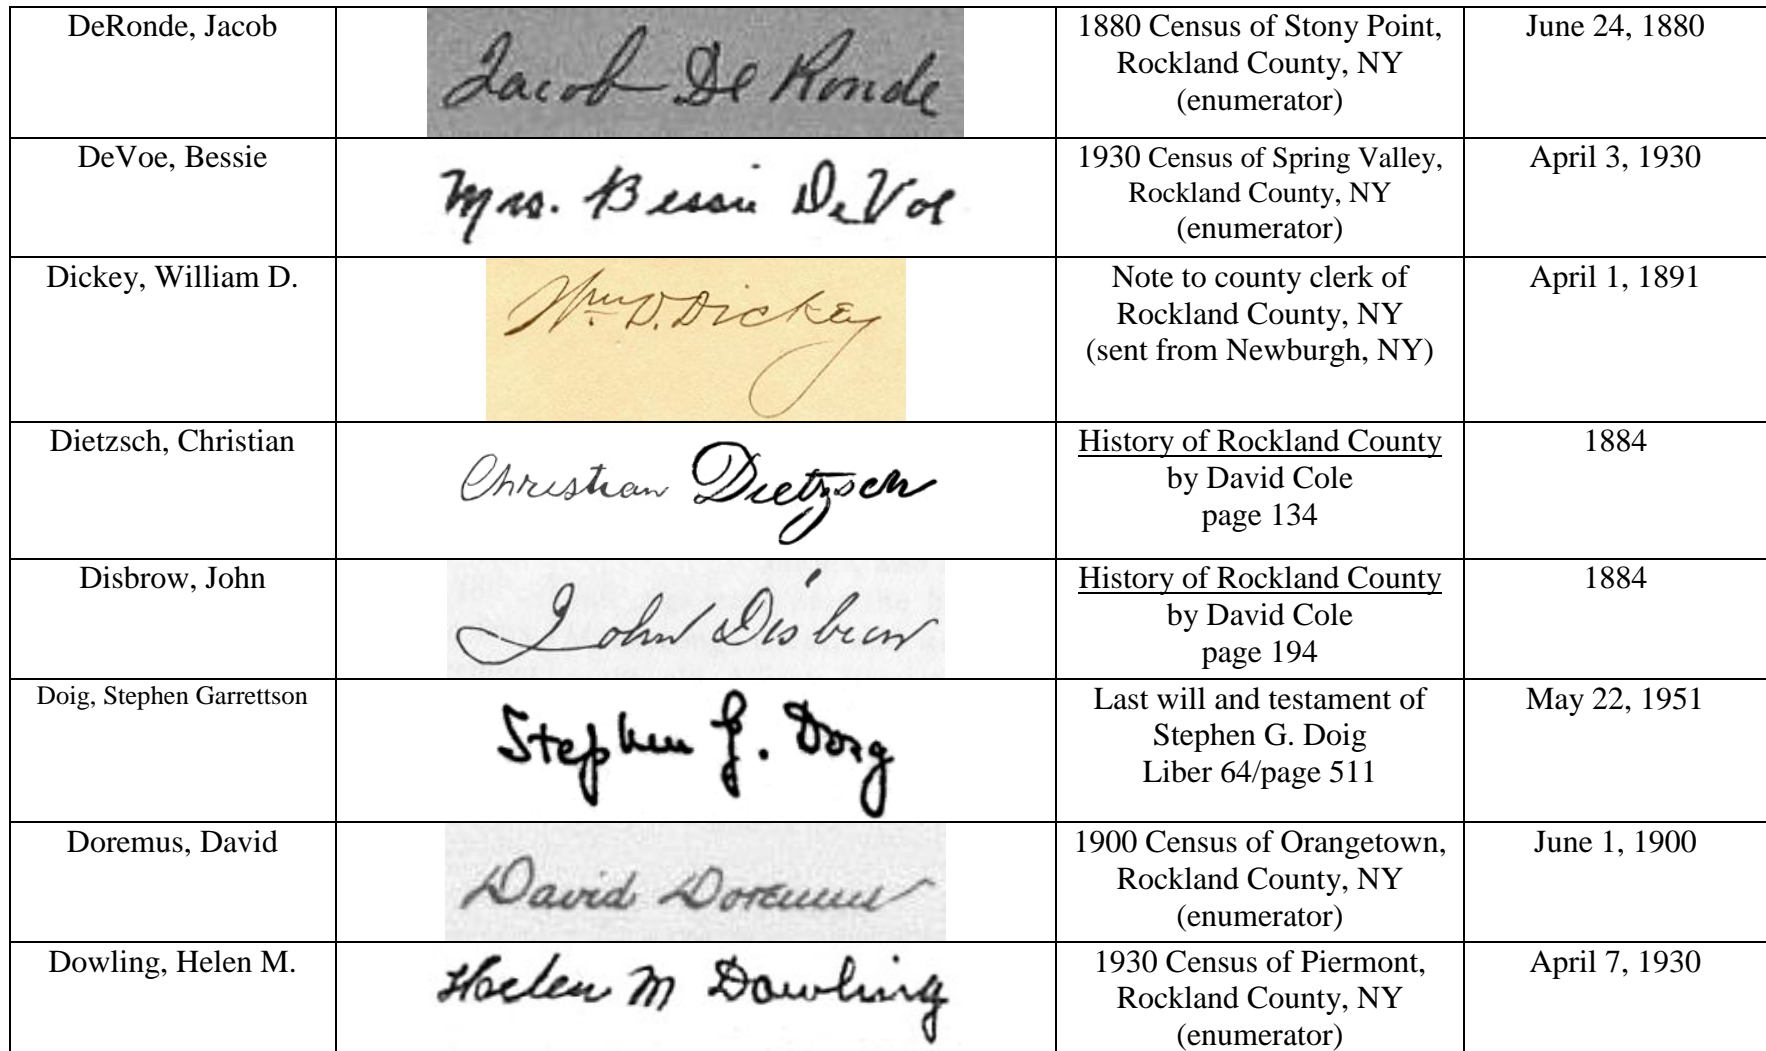 DeRonde, Jacob
Jacob De Ronde
1880 Census of Stony Point,
Rockland County, NY
(enumerator)
June 24, 1880
DeVoe, Bessie
Mrs. Bessie DeVoe
1930 Census of Spring Valley,
Rockland County, NY
(enumerator)
April 3, 1930
Dickey, William D.
Wm. D. Dickey
Note to county clerk of
Rockland County, NY
(sent from Newburgh, NY)
April 1, 1891
Dietzsch, Christian
Christian Dietzsch
History of Rockland County
by David Cole
page 134
1884
Disbrow, John
John Disbrow
History of Rockland County
by David Cole
page 194
1884
Doig, Stephen Garrettson
Stephen G. Doig
Last will and testament of
Stephen G. Doig
Liber 64/page 511
May 22, 1951
Doremus, David
David Doremus
1900 Census of Orangetown,
Rockland County, NY
(enumerator)
June 1, 1900
Dowling, Helen M.
Helen M Dowling
1930 Census of Piermont,
Rockland County, NY
(enumerator)
April 7, 1930